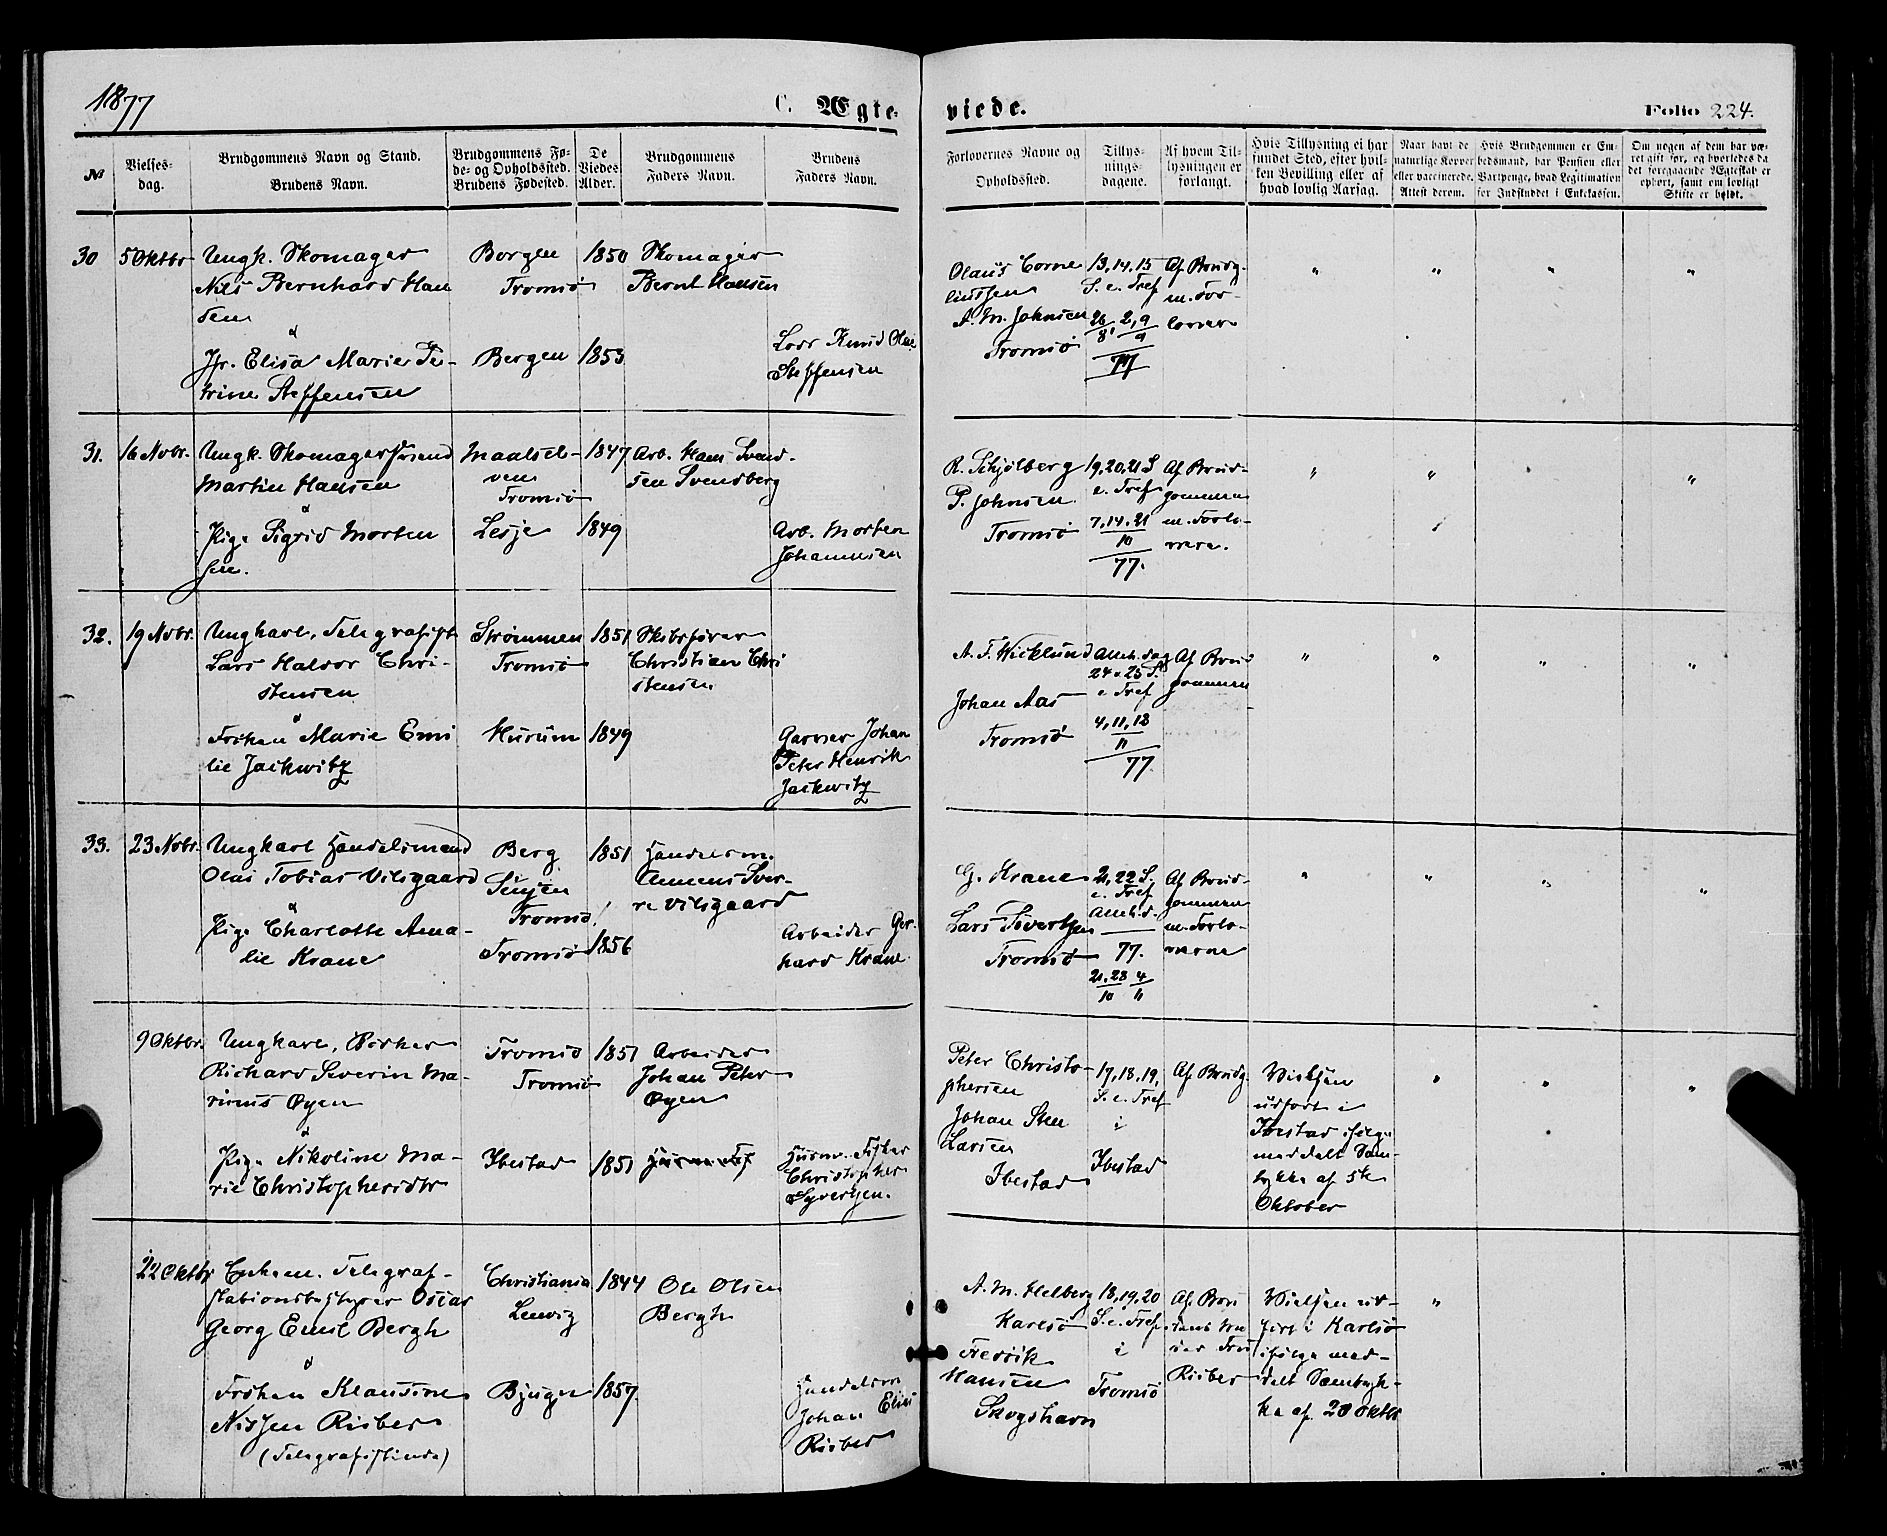 1877
C. Ægte-
viede.
Folio 224.
No
Vielses-
dag.
Brudgommens Navn og Stand.
Brudens Navn.
Brudgommens Fø-
de- og Opholdssted.
Brudens Fødested.
De
Viedes
Alder.
Brudgommens
Faders Navn.
Brudens
Faders Navn.
Forlovernes Navne og
Opholdssted.
Tillys-
nings-
dagene.
Af hvem Til-
lysningen er
forlangt.
Hvis Tillysning ei har
fundet Sted, efter hvil-
ken Bevilling eller af
hvad lovlig Aarsag.
Naar havt de
naturlige Kopper
eller vaccinerede.
Attest derom.
Hvis Brudgommen er Em-
bedsmand, har Pension eller
Vartpenge, hvad Legitimation
for Indskuddet i Enkekassen.
Om nogen af dem har væ-
ret gift før, og hvorledes da
det foregaaende Ægteskab er
ophørt, samt om lovligt
Skifte er holdt.
30
5 Oktbr
Ungk. Skomager
Nils Bernhard Han
sen
&
Jfr. Elisa Marie Pe-
trine Steffensen
Borgen
Tromsø
Bergen
1850
1853
Skomager
Bernt Hansen
Knud
Steffensen
Olaus
A. M. Johnsen
Tromsø
13, 14, 15
S. e. Tref
26 2, 9
8 9
77
Af Brudg.
m. For-
lovere
" " " "
31.
16 Novbr.
Ungk. Skomagersvend
Martin Hansen
&
Pige Sigrid Morten
sen.
Maalsel-
ven
Tromsø
Lesje
1847
1849
Arb. Hans Svend-
sen Svendberg
Arb. Morten
Johannesen
R. Schjølberg
P. Johnsen
Tromsø
19, 20, 21 S
e. Tref
7, 14, 21
10
77.
Af Brud-
gommen
m. Forlo-
verne.
" " "
32.
19 Novbr.
Ungkarl, Telegrafist
Lars Halvor Chri-
stensen
&
Frøken Marie Emi
lie Jackwitz
Strømmen
Tromsø
Hurum
1851
1849
Skibsfører
Christian Chri
stensen
Garver Johan
Peter Henrik
Jackwitz
A. F. Wicklund
Johan Aas
Tromsø
Alleh. dag
24 & 25 S.
e Tref
4, 11, 18
11
77.
Af Brud
gommen
" " " "
33.
23 Novbr.
Ungkarl Handelsmand
Olai Tobias Vilsgaard
&
Pige Charlotte Ama-
lie Krane
Berg
Senjen
Tromsø
Tromsø
1851
1856
Handelsm.
Clemens Sver-
re Vilsgaard
Arbeider Ger-
hard Krane
G. Krane
Lars Sivertsen
Tromsø
21, 22 S.
e. Tref
Alleh. d.
77.
21, 28 4
10 11
Af Brud-
gommen
m. Forlo-
verne
" " " "
9 Oktbr.
Ungkarl,
Richard Severin Ma-
rinius Øyen
&
Pige Nikoline Ma-
rie Christophersdtr
Tromsø
Tromsø
Ibestad
1851
1851
Arbeider
Johan Peter
Øyen
Husm. Fisker
Christopher
Syvertsen.
Peter Christo-
phersen
Johan Sten
Larsen
Ibestad
17, 18, 19,
S. e. Tref
i
Ibestad
Af Brudg.
Vielsen
udført i
Ibestad ifølge
meddelt Sam-
tykke af 5te
Oktober
" " "
22 Oktbr
Enkem. Telegraf-
stationsbestyrer Oscar
Georg Emil Bergh
&
Frøken Klausine
Nissen Risber
(Telegrafistinde)
Christiania
Lenvig
Bjugn
1844
1857.
Ole Olsen
Bergh
Handelsm
Johan Elias
Risber
A. M. Helberg
Karlsø
Fredrik
Hansen
Skogshavn
18, 19, 20
S. e. Tref
i
Tromsø
Af Bru
dens
Fru
Risber
Vielsen ud-
ført i Karlsø
ifølge med-
delt Samtyk-
ke af 20 Oktbr
"